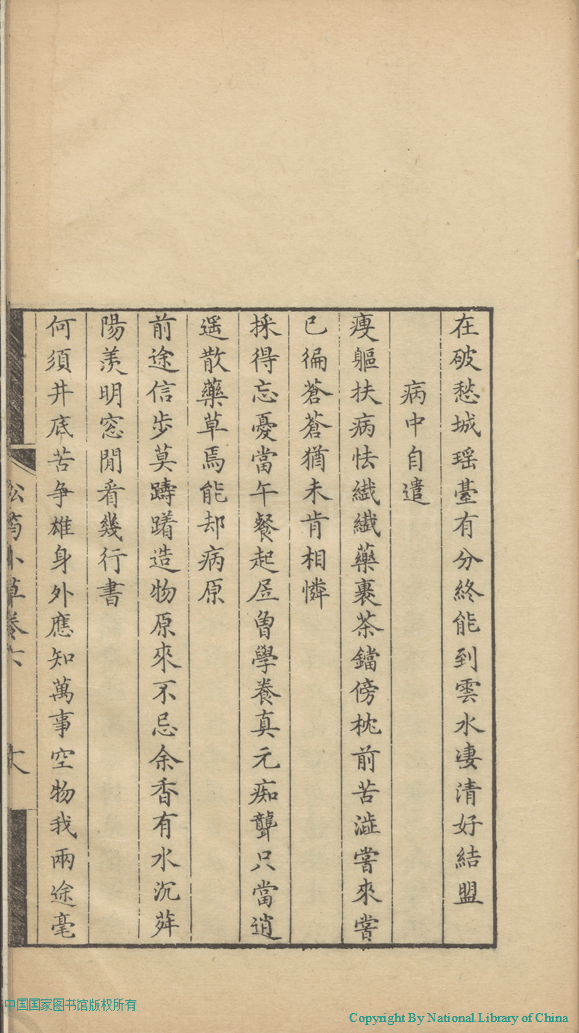 在破愁城瑶臺有分終能到雲水凄清好結盟
病中自遣
瘦軀扶病怯纖纖藥裹茶鐺傍枕前苦澁嘗來嘗
已徧蒼蒼猶未肯相憐
採得忘憂當午餐起居曽學養真元痴聾只當逍
遥散藥草焉能却病原
前途信步莫躊躇造物原來不忌余香有水沉茻
陽羨明窓閒看幾行書
何須井底苦争雄身外應知萬事空物我兩途毫
松筠小草卷六
中国国家图书馆版权所有
Copyright By National Library of China